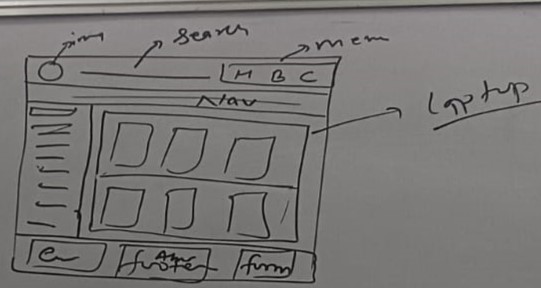 im
Search
mem
H B C
Nav
Laptop
footer
form